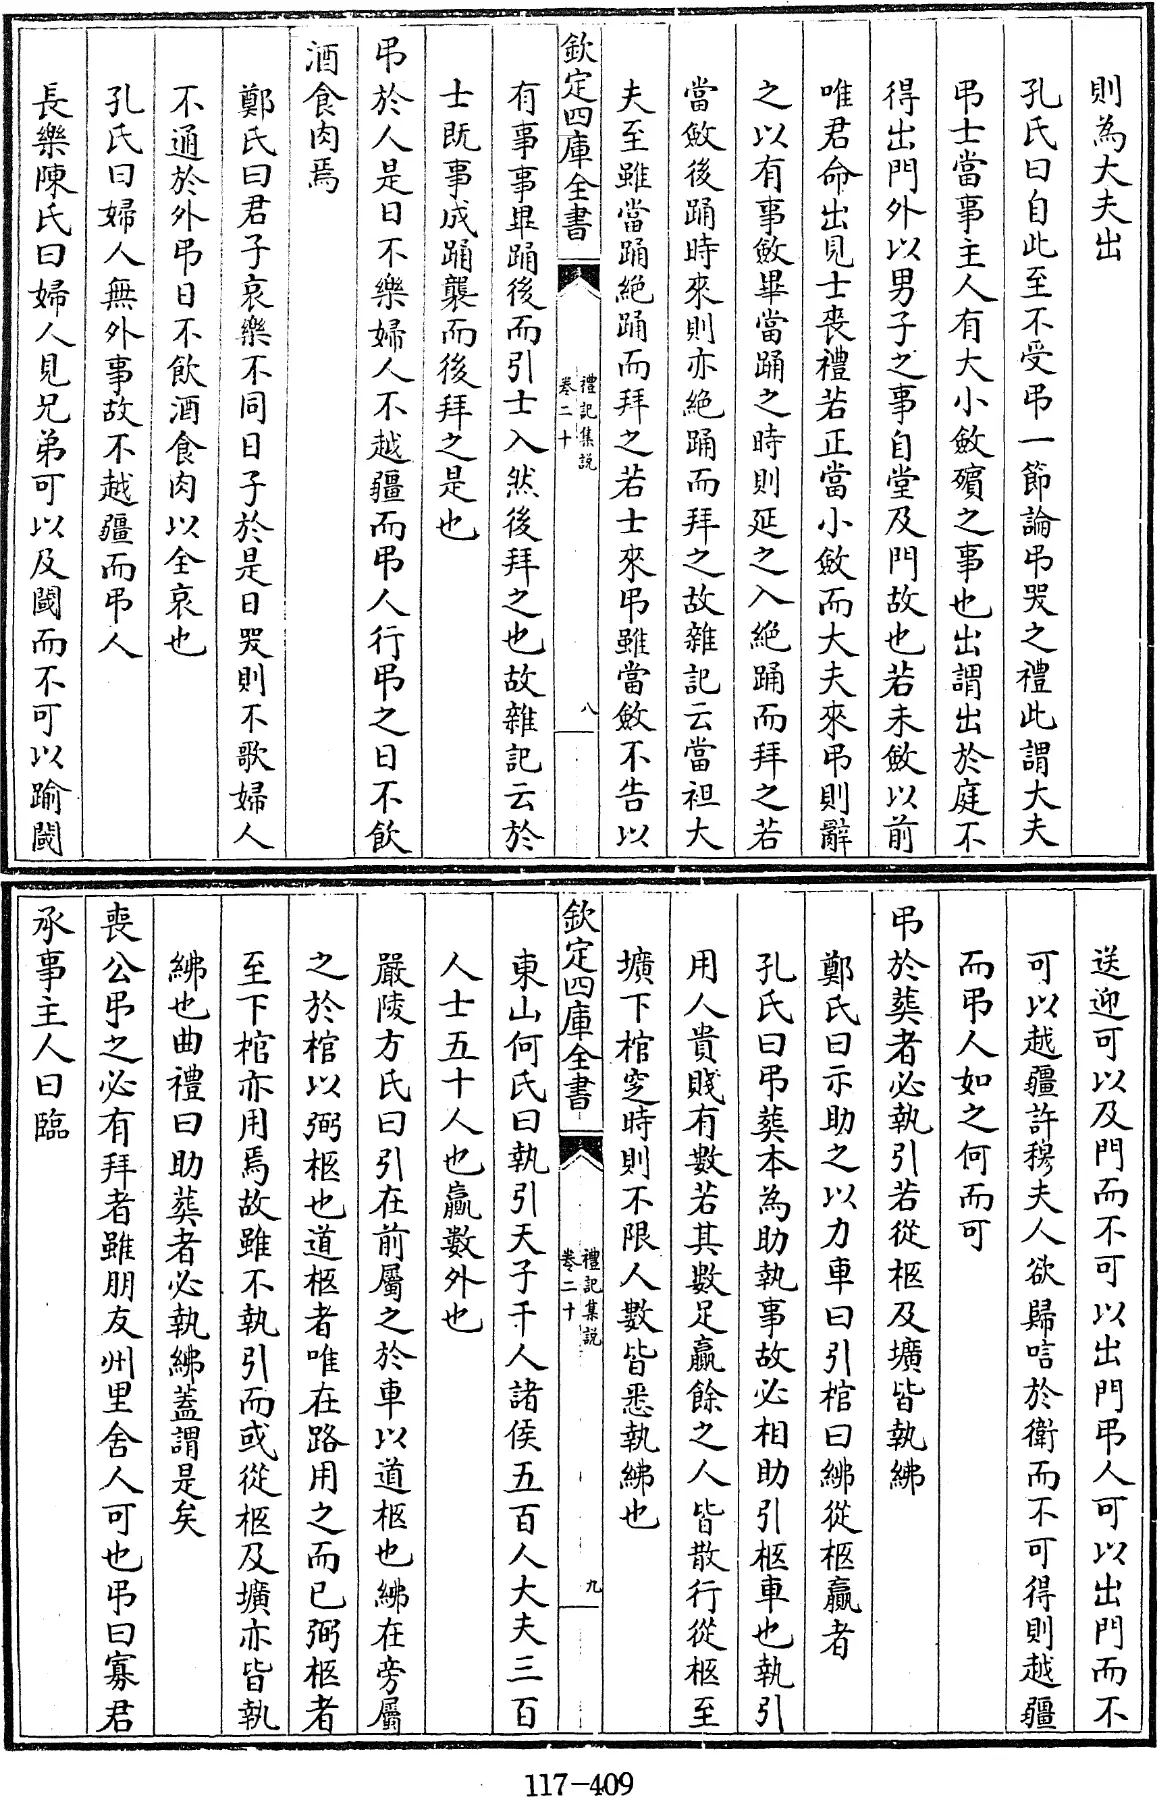 則為大夫出
孔氏曰自此至不受弔一節論弔哭之禮此謂大夫
弔士當事主人有大小斂殯之事也出謂出於庭不
得出門外以男子之事自堂及門故也若未斂以前
唯君命出見士喪禮若正當小斂而大夫來弔則辭
之以有事斂畢當踊之時則延之入絶踊而拜之若
當斂後踊時來則亦絶踊而拜之故雜記云當袒大
夫至雖當踊絶踊而拜之若士來弔雖當斂不告以
欽定四庫全書
禮記集説
卷二十
八
有事事畢踊後而引士入然後拜之也故雜記云於
士既事成踊襲而後拜之是也
弔於人是日不樂婦人不越疆而弔人行弔之日不飲
酒食肉焉
鄭氏曰君子哀樂不同日子於是日哭則不歌婦人
不通於外弔日不飲酒食肉以全哀也
孔氏曰婦人無外事故不越疆而弔人
長樂陳氏曰婦人見兄弟可以及閾而不可以踰閾
送迎可以及門而不可以出門弔人可以出門而不
可以越疆許穆夫人欲歸唁於衛而不可得則越疆
而弔人如之何而可
弔於葬者必執引若從柩及壙皆執紼
鄭氏曰示助之以力車曰引棺曰紼從柩贏者
孔氏曰弔葬本為助執事故必相助引柩車也執引
用人貴賤有數若其數足贏餘之人皆散行從柩至
壙下棺窆時則不限人數皆悉執紼也
欽定四庫全書
禮記集説
卷二十
九
東山何氏曰執引天子千人諸侯五百人大夫三百
人士五十人也贏數外也
嚴陵方氏曰引在前屬之於車以道柩也紼在旁屬
之於棺以弼柩也道柩者唯在路用之而已弼柩者
至下棺亦用焉故雖不執引而或從柩及壙亦皆執
紼也曲禮曰助葬者必執紼蓋謂是矣
喪公弔之必有拜者雖朋友州里舍人可也弔曰寡君
承事主人曰臨
117-409